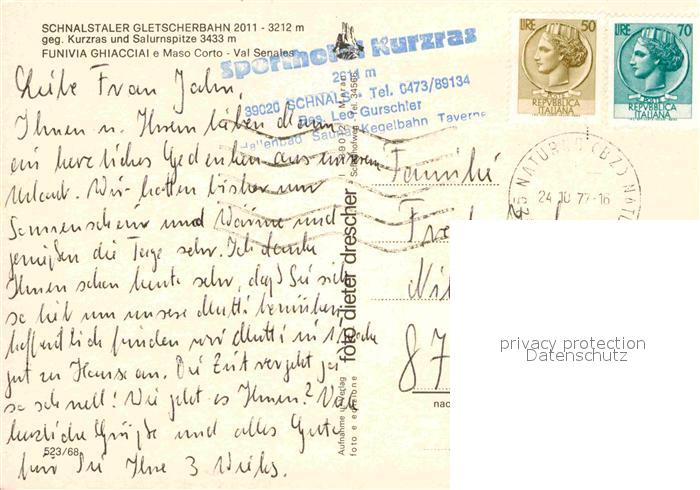 SCHNALSTALER GLETSCHERBAHN 2011 - 3212 m
geg. Kurzras und Salurnspitze 3433 m
FUNIVIA GHIACCIAI e Maso Corto - Val Senales
Sporthotel Kurzras
2011 m
39020 SCHNALS Tel. 0473/89134
Bes. Leo Gurschler
Hallenbad Sauna Kegelbahn Taverne
LIRE 50
REPVBBLICA
ITALIANA
LIRE 70
REPVBBLICA
ITALIANA
NATURNO (BZ)
24.10.77-16
Liebe Frau Jahn,
Ihnen u. Ihren Lieben dann
ein herzliches Gedenken aus unserem
Urlaub. Wir hatten bisher nur
Sonnenschein und Wärme und
genießen die Tage sehr. Ich danke
Ihnen schon heute sehr, daß Sie sich
so lieb um unsere Mutti bemühen
hoffentlich finden wir Mutti
gut zu Hause an. Die Zeit vergeht ja
so schnell! Wie geht es Ihnen? Viele
herzliche Grüße und alles Gute
für Sie Ihre 3
523/68
foto dieter drescher
Aufnahme u. Verlag
foto e edizione
Familie
87
nac
privacy protection
Datenschutz